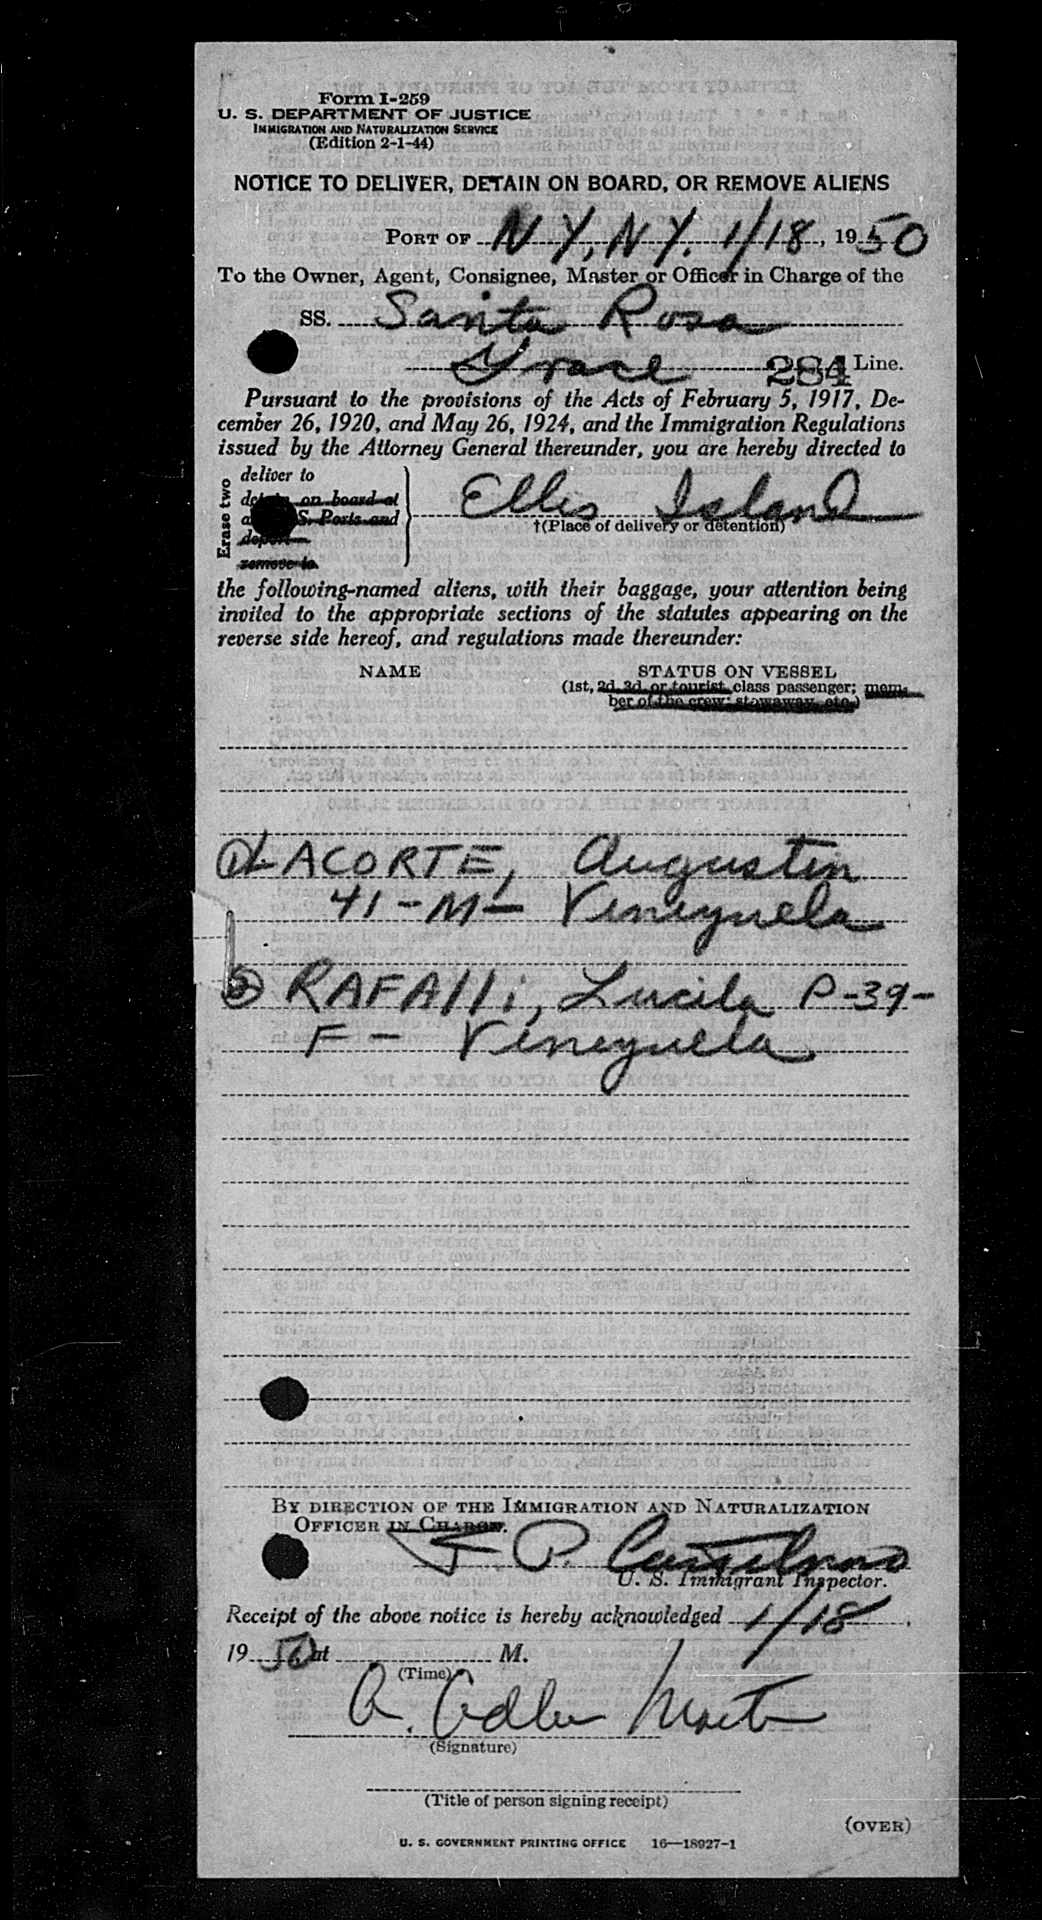 Form I-259
U. S. DEPARTMENT OF JUSTICE
IMMIGRATION AND NATURALIZATION SERVICE
(Edition 2-1-44)
NOTICE TO DELIVER, DETAIN ON BOARD, OR REMOVE ALIENS
PORT OF N Y, N Y. 1/18, 1950
To the Owner, Agent, Consignee, Master or Officer in Charge of the
SS. Santa Rosa
Grace 284 Line.
Pursuant to the provisions of the Acts of February 5, 1917, De-
cember 26, 1920, and May 26, 1924, and the Immigration Regulations
issued by the Attorney General thereunder, you are hereby directed to
Erase two
deliver to
on board at
S. Ports and
deport
remove to
Ellis Island
†(Place of delivery or detention)
the following-named aliens, with their baggage, your attention being
invited to the appropriate sections of the statutes appearing on the
reverse side hereof, and regulations made thereunder:
NAME STATUS ON VESSEL
(1st, 2d, 3d, or tourist class passenger; mem-
ber of the crew; stowaway, etc.)
① LACORTE, Augustin
41 - M - Venezuela
② RAFAlli, Lucila P - 39 -
F - Venezuela
BY DIRECTION OF THE IMMIGRATION AND NATURALIZATION
OFFICER IN CHARGE.
P.
U. S. Immigrant Inspector.
Receipt of the above notice is hereby acknowledged 1/18,
1950 at M.
(Time)
A. Adler
(Signature)
(Title of person signing receipt)
(OVER)
U. S. GOVERNMENT PRINTING OFFICE 16—18927-1